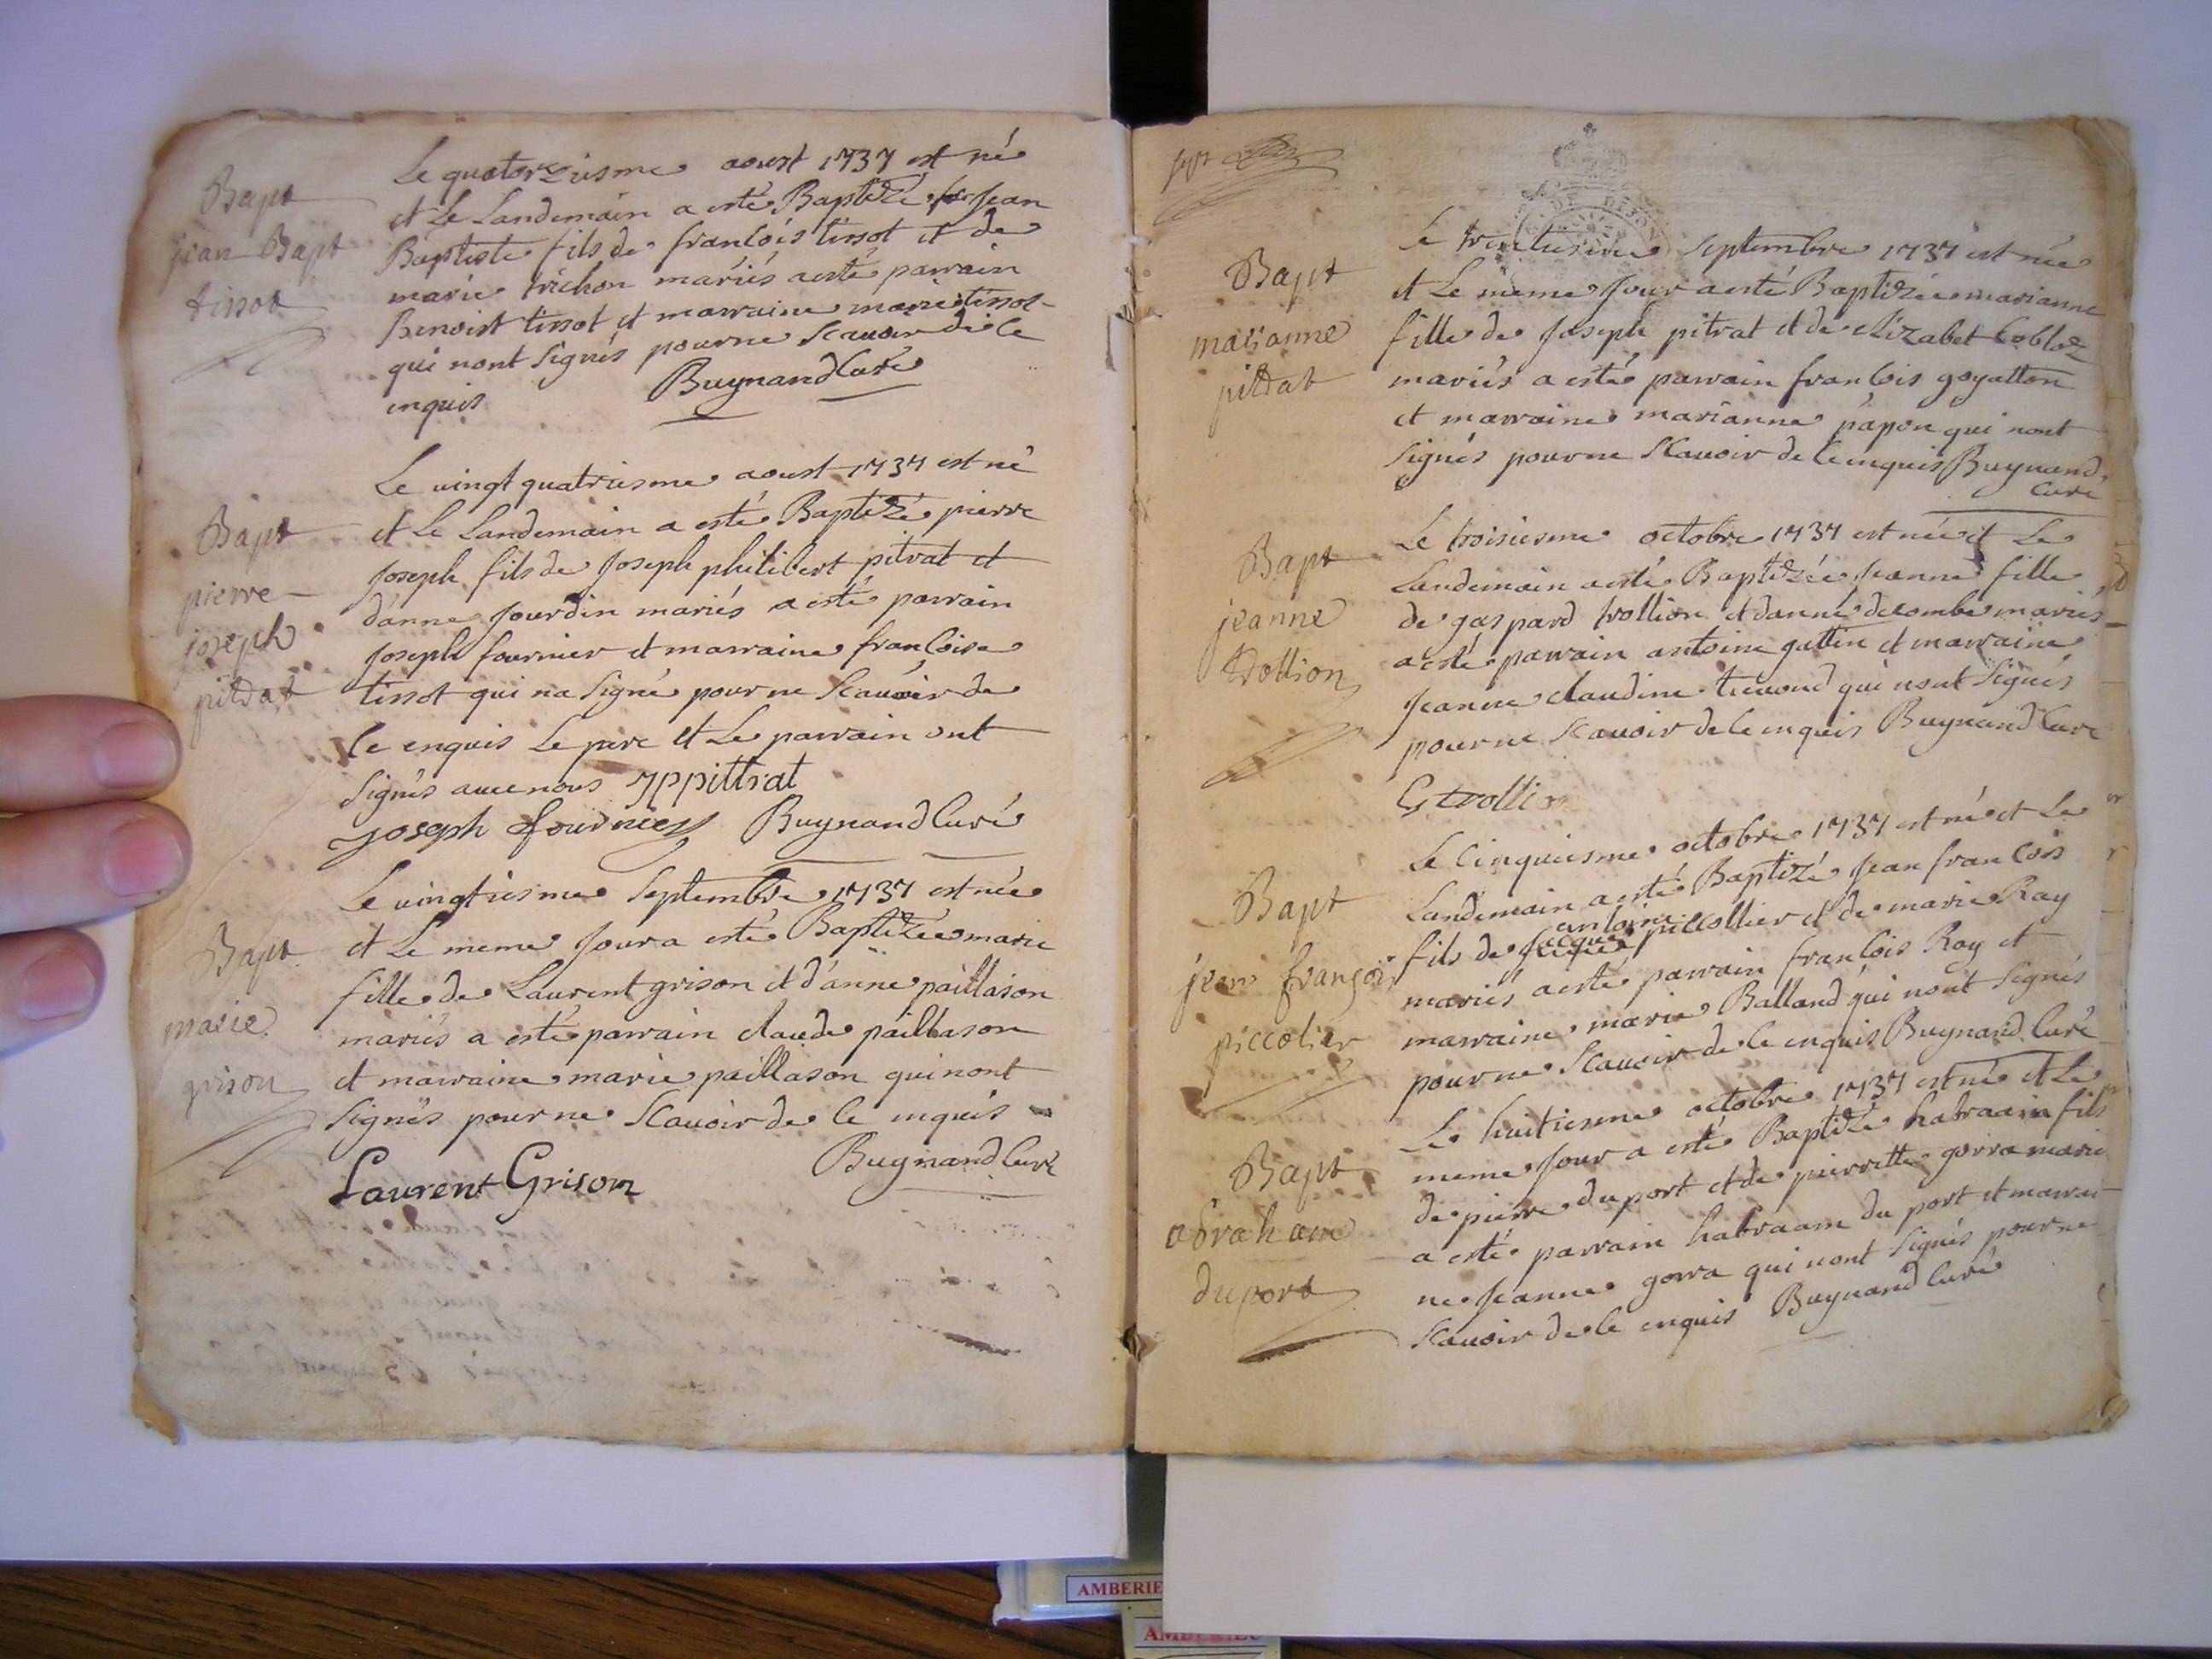 Bapt
jean Bapt
tissot
Le quatorziesme aoust 1737 est né
et Le Landemain a esté Baptizé Jean
Baptiste fils de francois tissot et de
marie trichon mariés a esté parrain
Benoist tissot et marraine marie tissot
qui nont Signés pour ne Scauoir de ce
enquis Buynand Curé
Bapt
pierre
joseph
pitrat
Le uingt quatriesme aoust 1737 est né
et Le Landemain a esté Baptizé pierre
Joseph fils de Joseph philibert pitrat et
d'anne Jourdin mariés a esté parrain
Joseph fournier et marraine francoise
tissot qui na Signé pour ne Scauoir de
ce enquis Le pere et Le parrain ont
Signés auec nous JPpittrat
Joseph fournier Buynand Curé
Bapt
marie
grison
Le uingtiesme Septembre 1737 est née
et Le meme Jour a esté Baptizée marie
fille de Laurent grison et d'anne paillason
mariés a esté parrain claude paillason
et marraine marie paillason qui nont
Signés pour ne Scauoir de ce enquis
Laurent Grison Buynand Curé
DE DIJON
Bapt
marianne
pitrat
Le Septembre 1737 est née
et Le meme Jour a esté Baptizée marianne
fille de Joseph pitrat et de elizabet Cobloz
mariés a esté parrain francois goyatton
et marraine marianne papon qui nont
Signés pour ne Scauoir de ce enquis Buynand
Curé
Bapt
jeanne
trollion
Le troisiesme octobre 1737 est née et Le
Landemain a esté Baptizée Jeanne fille
de gaspard trollion et danne decombe mariés
a esté parrain antoine gattin et marraine
Jeanne claudine qui nont Signés
pour ne Scauoir de ce enquis Buynand Curé
G trollion
Bapt
jean françois
piccolier
Le Cinquiesme octobre 1737 est né et Le
Landemain a esté Baptizé Jean francois
antoine
fils de Jacques piccollier et de marie Ray
mariés a esté parrain francois Ray et
marraine marie Balland qui nont Signés
pour ne Scauoir de ce enquis Buynand Curé
Bapt
abraham
duport
Le huitiesme octobre 1737 est né et Le
meme Jour a esté Baptizé habraam fils
de pierre du port et de pierrette gorra marié
a esté parrain habraam du port et marrai
ne Jeanne gorra qui nont Signés pour ne
Scauoir de ce enquis Buynand Curé
AMBERIE